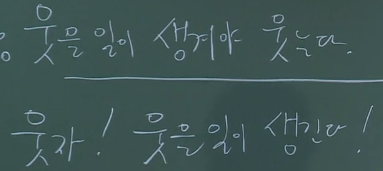 웃을 일이 생겨야 웃는다.
웃자! 웃을 일이 생긴다!